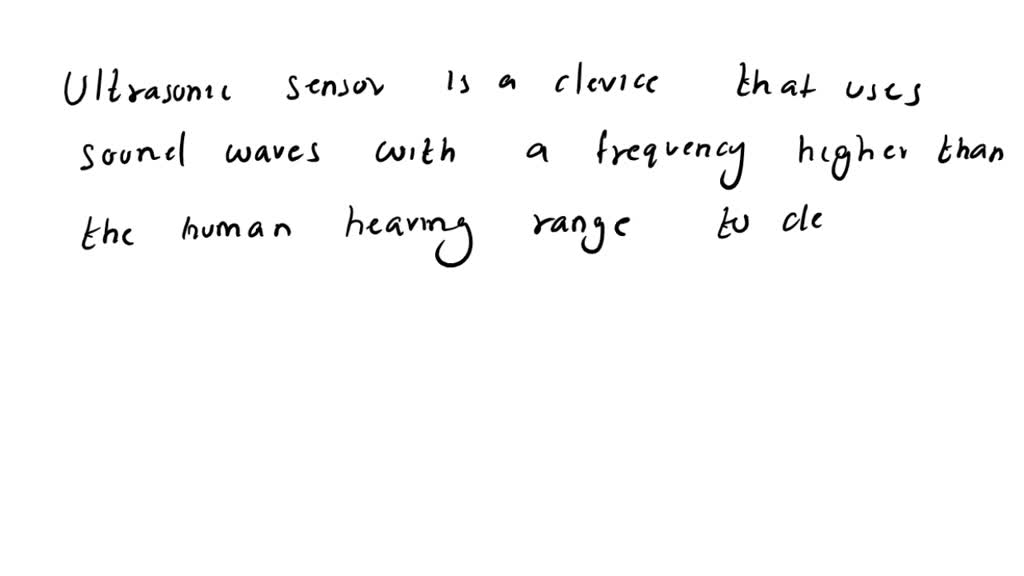 Ultrasonic sensor is a device that uses
sound waves with a frequency higher than
the human hearing range to de